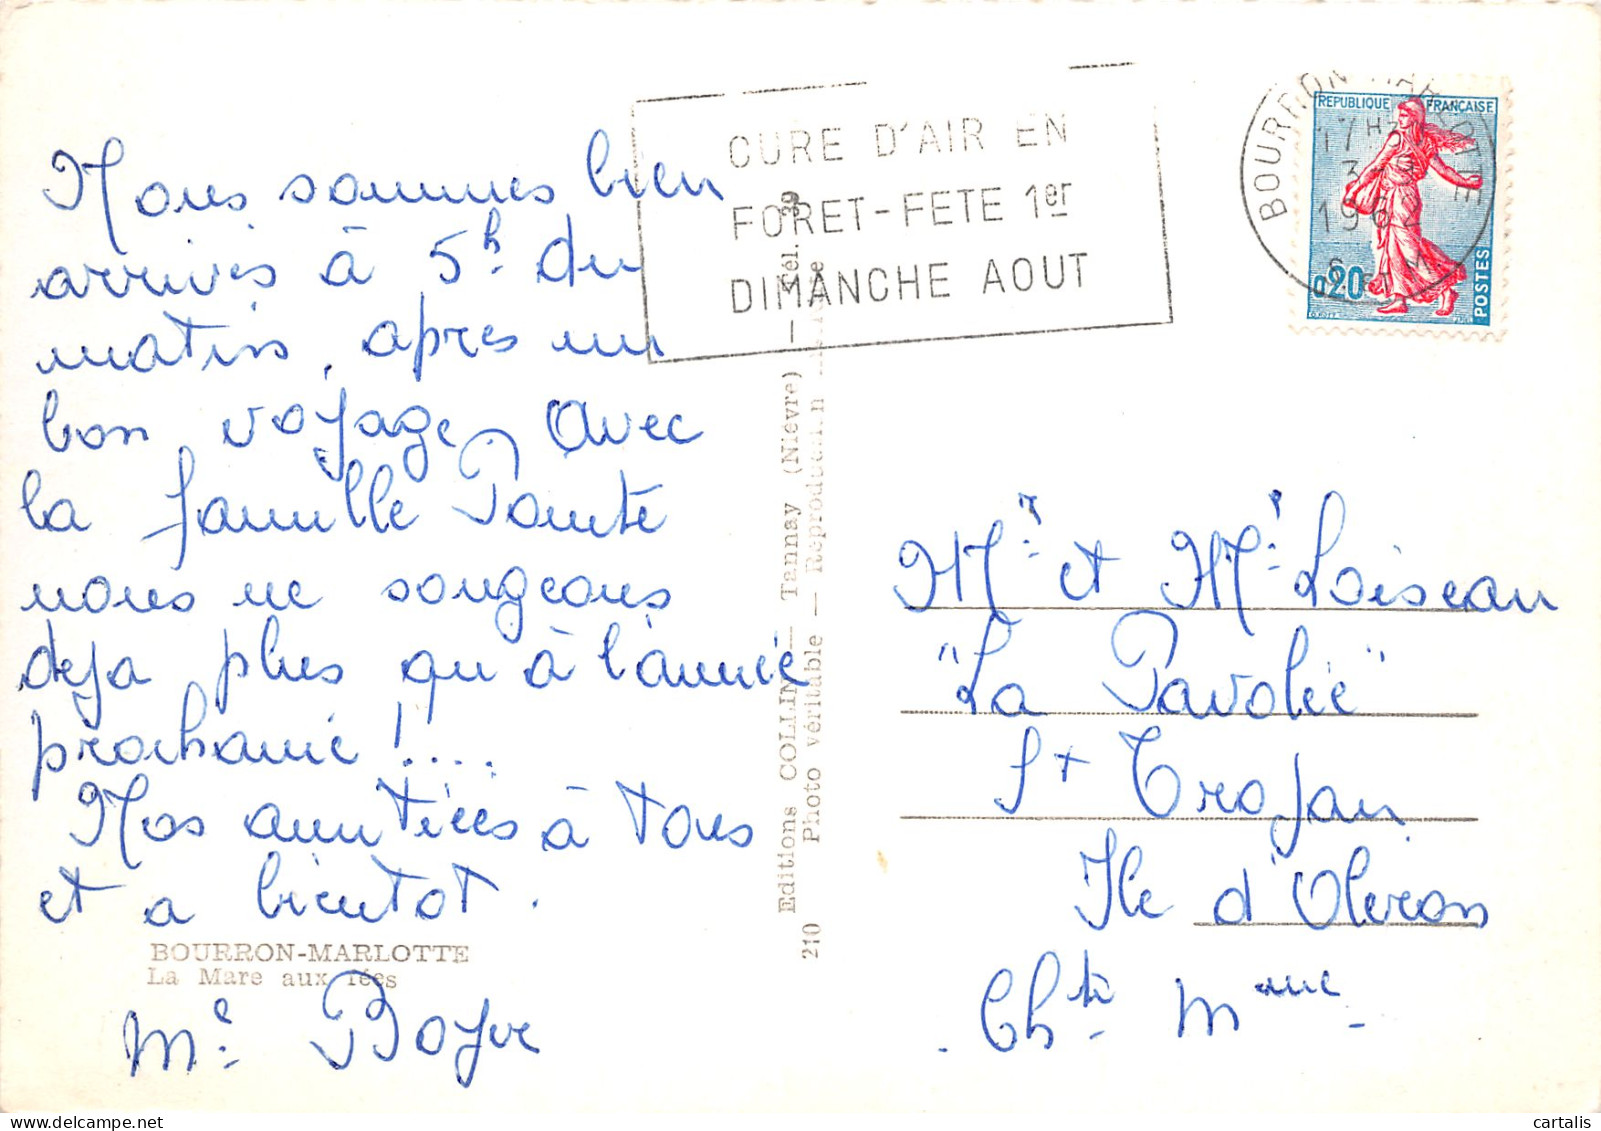 Nous sommes bien
arrivés à 5h du
matin, après un
bon voyage. Avec
la famille Pomté
nous ne songeons
deja plus qu'à l'année
prochaine !....
Nos amitiées à tous
et a bientot.
BOURRON-MARLOTTE
La Mare aux fées
Me Boyer
CURE D'AIR EN
FORET-FETE 1er
DIMANCHE AOUT
210 Editions COLLIN — Tannay (Nièvre) — Tél. 39
Photo véritable — Reproduction
BOURRON MARLOTTE
17H
3 -
1962
S. ET M.
REPUBLIQUE FRANÇAISE
0,20
POSTES
Mr et Me Loiseau
"La Pavolée"
St Trojan
Ile d'Oleron
Chte Mme
cartalis
www.delcampe.net